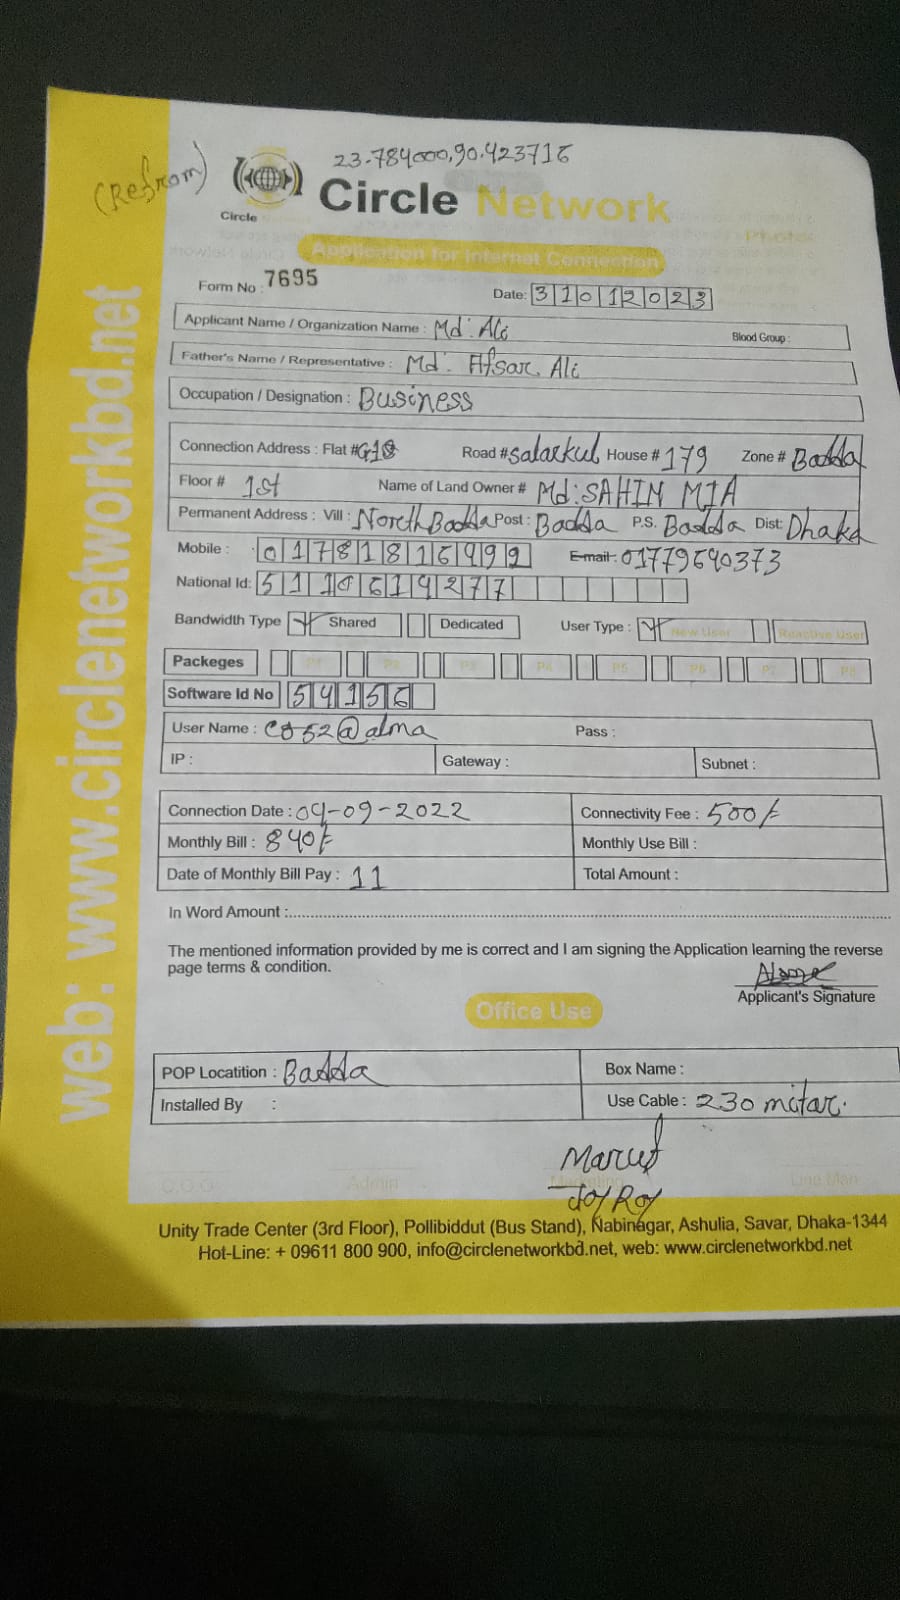 23.784000,90.423716
(Refrom)
Circle Network
Circle
Application for Internet Connection
Form No : 7695
Date: 31012023
Applicant Name / Organization Name : Md: Ali Blood Group :
Father's Name / Representative : Md. Afsar Ali
Occupation / Designation : Business
Connection Address : Flat # Road # Salarkul House # 179 Zone # Badda
Floor # 1st Name of Land Owner # Md: SAHIN MIA
Permanent Address : Vill : North Badda Post : Badda P.S. Badda Dist: Dhaka
Mobile : 01781816499 E-mail: 01779640373
National Id: 5110614277
Bandwidth Type Shared Dedicated User Type : New User Reactive User
Packeges P1 P2 P3 P4 P5 P6 P7 P8
Software Id No 54156
User Name : @alma Pass :
IP : Gateway : Subnet :
Connection Date : 04-09-2022 Connectivity Fee : 500/-
Monthly Bill : 840/- Monthly Use Bill :
Date of Monthly Bill Pay : 11 Total Amount :
In Word Amount :
The mentioned information provided by me is correct and I am signing the Application learning the reverse
page terms & condition.
Applicant's Signature
Office Use
POP Locatition : Badda Box Name :
Installed By : Use Cable : 230 mitar.
Maruf
C.O.O Admin Marketing Line Man
Joy Roy
Unity Trade Center (3rd Floor), Pollibiddut (Bus Stand), Nabinagar, Ashulia, Savar, Dhaka-1344
Hot-Line: + 09611 800 900, info@circlenetworkbd.net, web: www.circlenetworkbd.net
web: www.circlenetworkbd.net